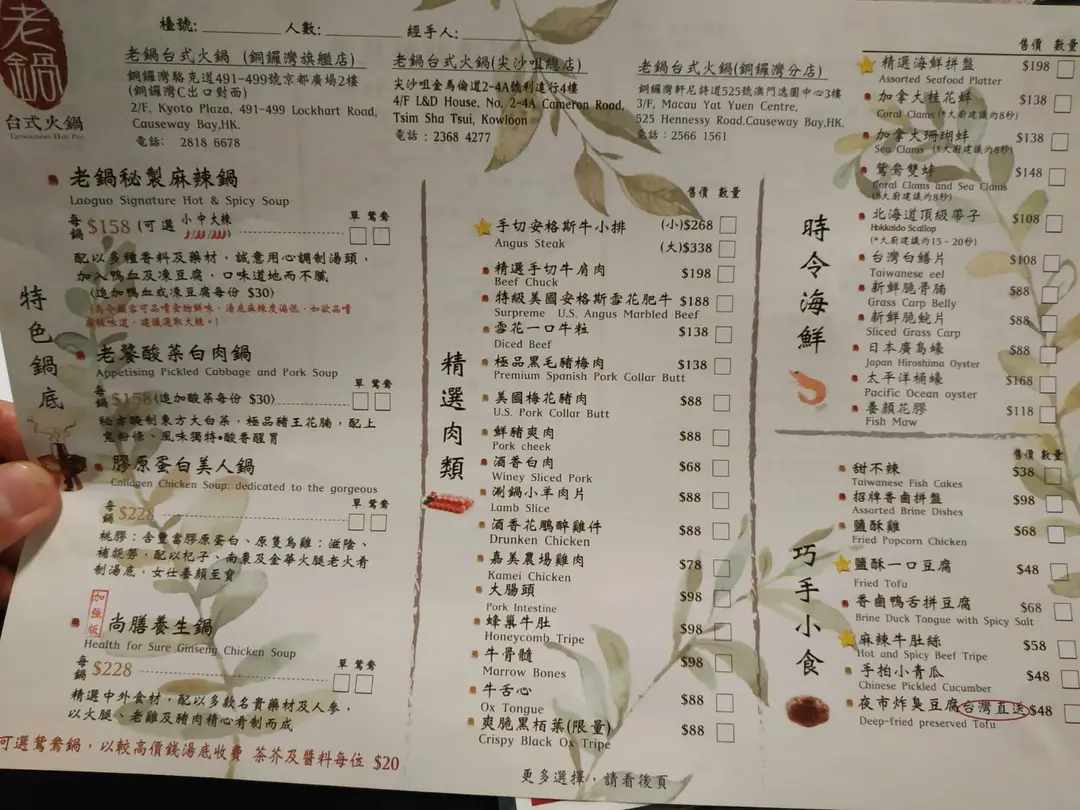 老鍋
台式火鍋
Taiwanese Hot Pot
檯號:
人數:
經手人:
老鍋台式火鍋 (銅鑼灣旗艦店)
銅鑼灣駱克道491-499號京都廣場2樓
(銅鑼灣C出口對面)
2/F, Kyoto Plaza, 491-499 Lockhart Road,
Causeway Bay,HK.
電話: 2818 6678
老鍋台式火鍋(尖沙咀總店)
尖沙咀金馬倫道2-4A號利達行4樓
4/F L&D House, No. 2-4A Cameron Road,
Tsim Sha Tsui, Kowloon
電話:2368 4277
老鍋台式火鍋(銅鑼灣分店)
銅鑼灣軒尼詩道525號澳門逸園中心3樓
3/F, Macau Yat Yuen Centre,
525 Hennessy Road,Causeway Bay,HK.
電話:2566 1561
特色鍋底
老鍋秘製麻辣鍋
Laoguo Signature Hot & Spicy Soup
單 鴛鴦
每鍋 $158 (可選 小中大辣
配以多種香料及藥材,誠意用心調制湯頭,
加入鴨血及凍豆腐,口味道地而不膩
(追加鴨血或凍豆腐每份 $30)
(為令顧客可品嚐食物鮮味,湯底麻辣度偏低,如欲品嚐
麻辣味道,建議選取大辣。)
老饕酸菜白肉鍋
Appetising Pickled Cabbage and Pork Soup
單 鴛鴦
每鍋 $158(追加酸菜每份 $30)
秘方醃制東方大白菜,極品豬王花腩,配上
寬粉條、風味獨特•酸香醒胃
膠原蛋白美人鍋
Collagen Chicken Soup: dedicated to the gorgeous
單 鴛鴦
每鍋 $228
桃膠:含豐富膠原蛋白、原隻烏雞:滋陰、
補能勞,配以杞子、南棗及金華火腿老火肴
制湯底,女仕養顏至寶
加強版
尚膳養生鍋
Health for Sure Ginseng Chicken Soup
單 鴛鴦
每鍋 $228
精選中外食材,配以多款名貴藥材及人參,
以火腿、老雞及豬肉精心肴制而成
可選鴛鴦鍋,以較高價錢湯底收費 茶芥及醬料每位 $20
精選肉類
售價 數量
手切安格斯牛小排 (小)$268
Angus Steak (大)$338
精選手切牛肩肉 $198
Beef Chuck
特級美國安格斯雪花肥牛 $188
Surpreme U.S. Angus Marbled Beef
雪花一口牛粒 $138
Diced Beef
極品黑毛豬梅肉 $138
Premium Spanish Pork Collar Butt
美國梅花豬肉 $88
U.S. Pork Collar Butt
鮮豬爽肉 $88
Pork cheek
酒香白肉 $68
Winey Sliced Pork
涮鍋小羊肉片 $88
Lamb Slice
酒香花鵰醉雞件 $88
Drunken Chicken
嘉美農場雞肉 $78
Kamei Chicken
大腸頭 $98
Pork Intestine
蜂巢牛肚 $98
Honeycomb Tripe
牛骨髓 $98
Marrow Bones
牛舌心 $88
Ox Tongue
爽脆黑栢葉(限量) $88
Crispy Black Ox Tripe
更多選擇,請看後頁
時令海鮮
售價 數量
精選海鮮拼盤 $198
Assorted Seafood Platter
加拿大桂花蚌 $138
Coral Clams (*大廚建議約8秒)
加拿大珊瑚蚌 $138
Sea Clams (*大廚建議約8秒)
鴛鴦雙蚌 $148
Coral Clams and Sea Clams
(*大廚建議約8秒)
北海道頂級帶子 $108
Hokkaido Scallop
(*大廚建議約15-20秒)
台灣白鱔片 $108
Taiwanese eel
新鮮脆骨腩 $88
Grass Carp Belly
新鮮脆鯇片 $88
Sliced Grass Carp
日本廣島蠔 $88
Japan Hiroshima Oyster
太平洋桶蠔 $168
Pacific Ocean oyster
養顏花膠 $118
Fish Maw
巧手小食
售價 數量
甜不辣 $38
Taiwanese Fish Cakes
招牌香鹵拼盤 $98
Assorted Brine Dishes
鹽酥雞 $68
Fried Popcorn Chicken
鹽酥一口豆腐 $48
Fried Tofu
香鹵鴨舌拼豆腐 $68
Brine Duck Tongue with Spicy Salt
麻辣牛肚絲 $58
Hot and Spicy Beef Tripe
手拍小青瓜 $48
Chinese Pickled Cucumber
夜市炸臭豆腐 台灣直送 $48
Deep-fried preserved Tofu